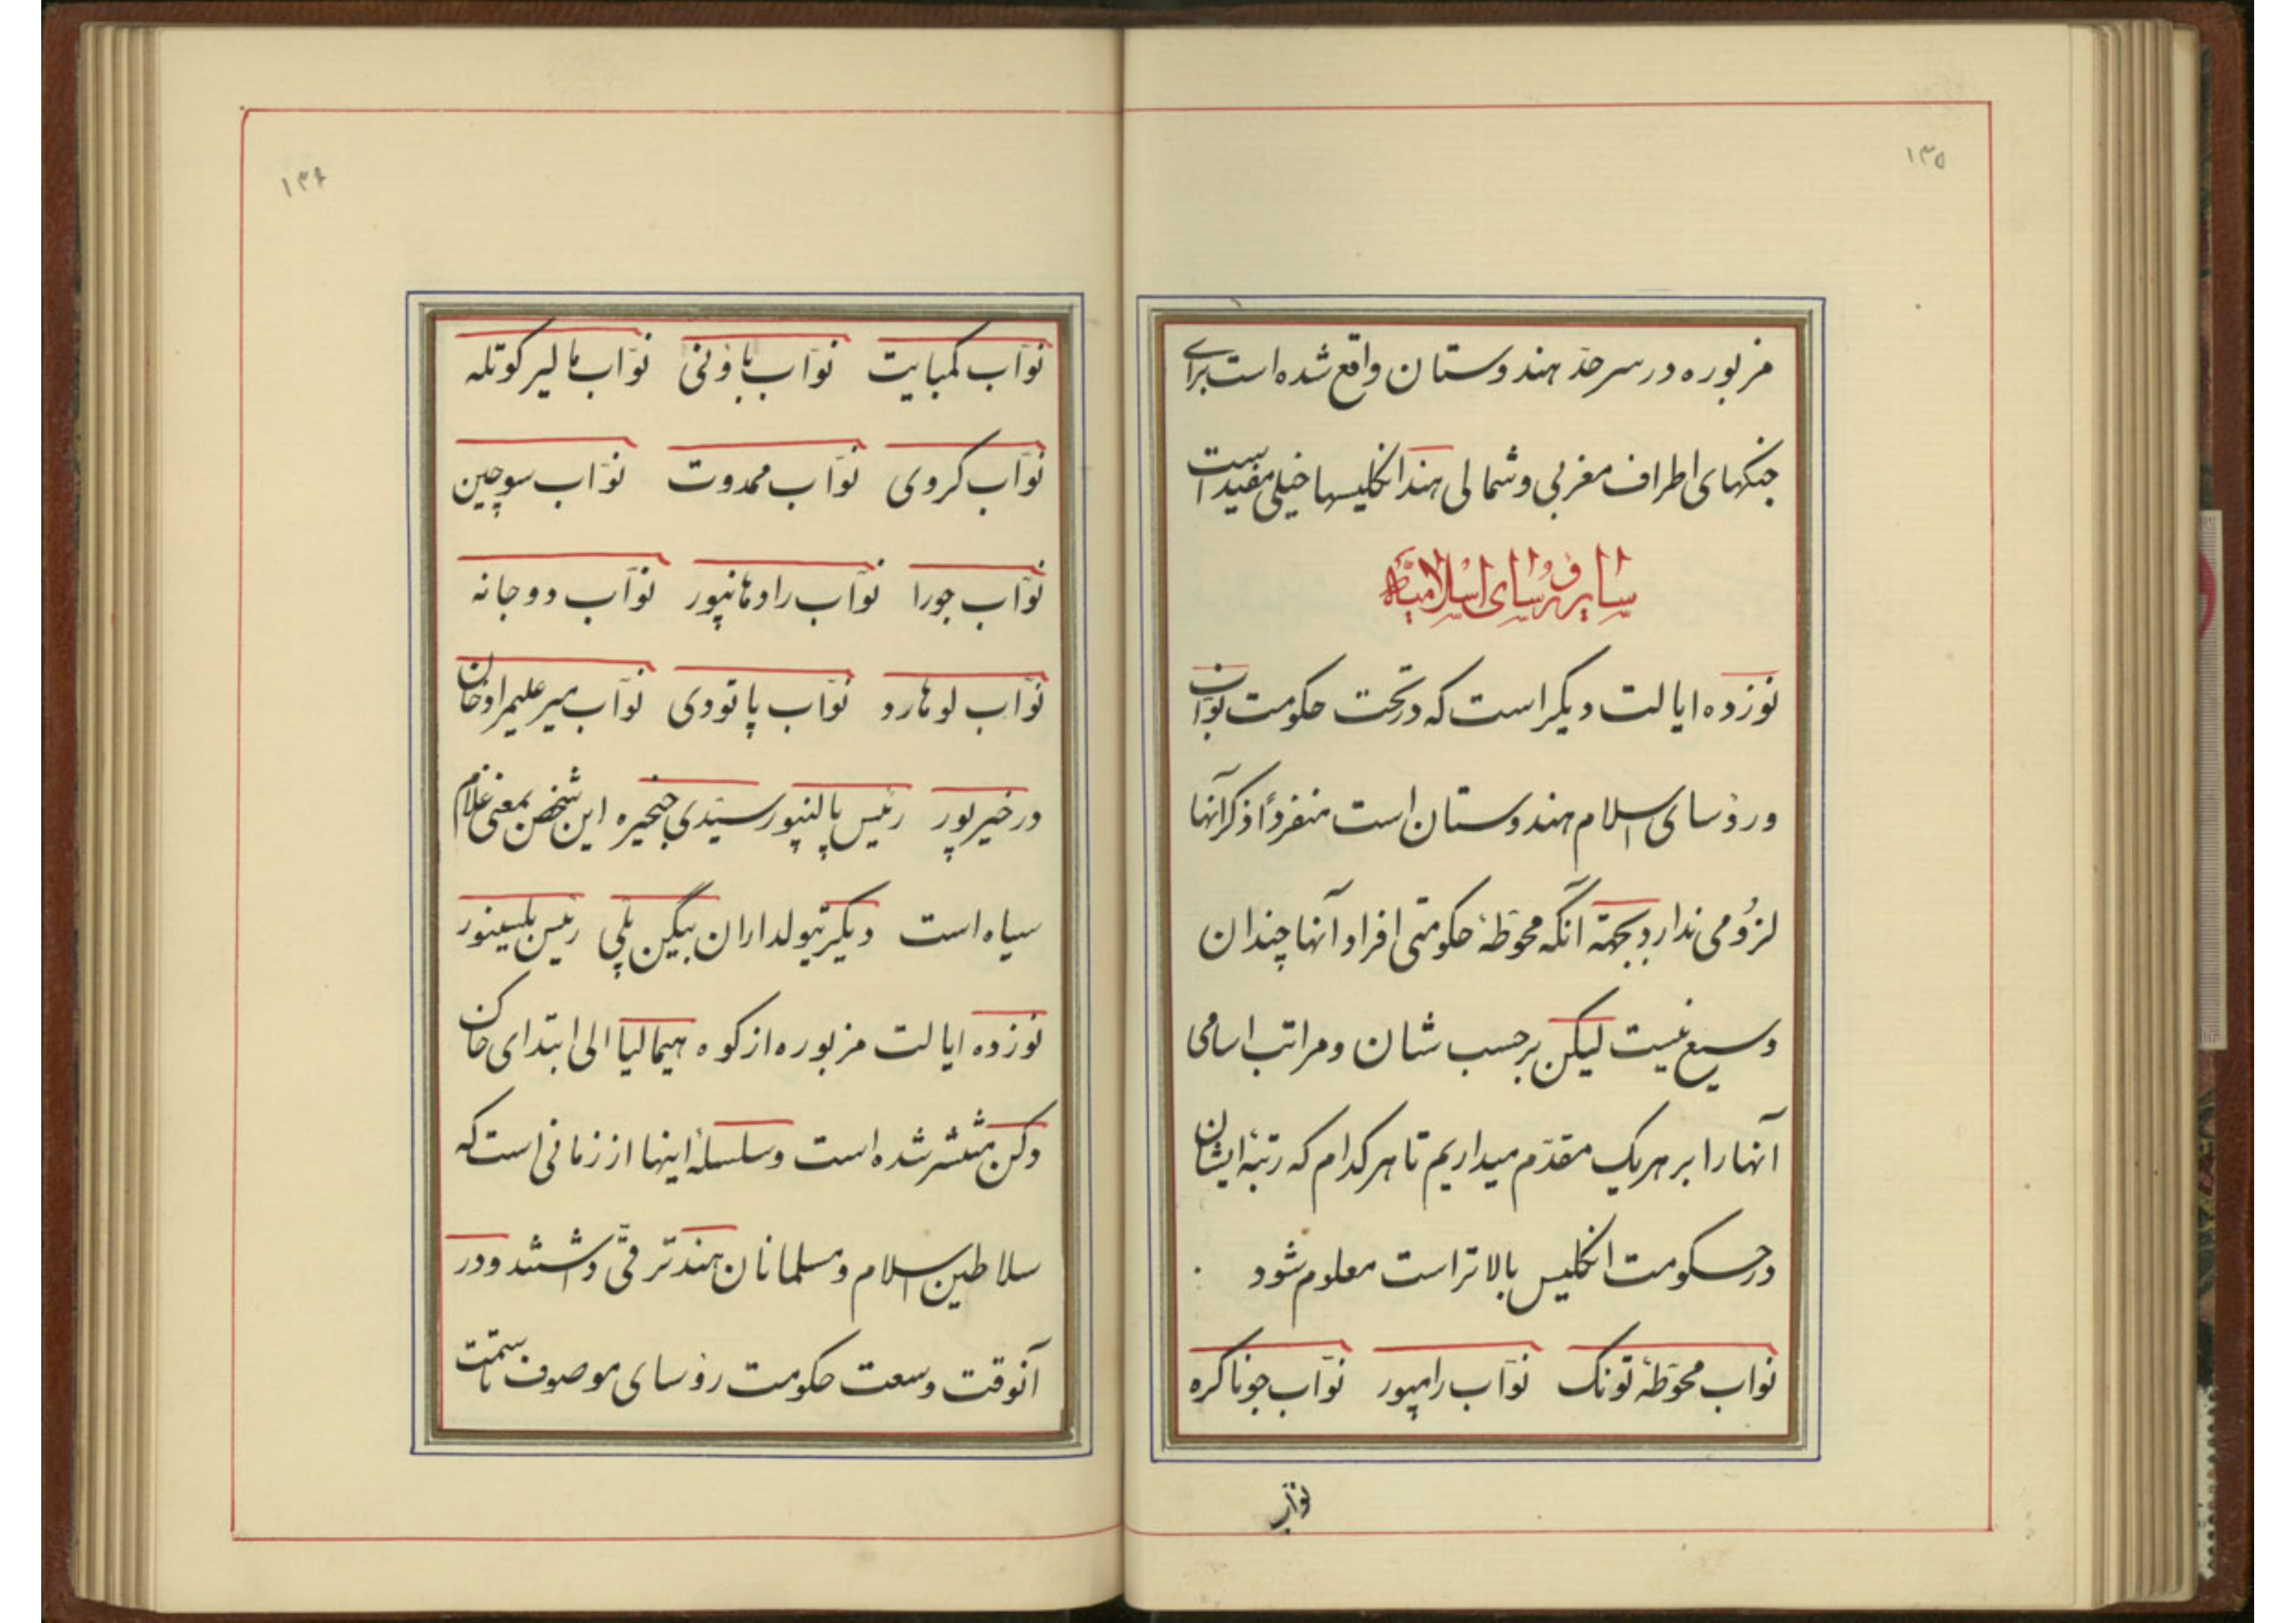 ۱۳۵
مزبوره در سرحدّ هندوستان واقع شده است برای
جنکهای اطراف مغربی و شمالی هند انکلیسها خیلی مفید است
سایر رؤسای اسلامیّه
نوزده ایالت دیکر است که در تحت حکومت نوّابان
و رؤسای اسلام هندوستان است منفرداً ذکر آنها
لزُومی ندارد بجهة آنکه محوّطهٔ حکومتی افراد آنها چندان
وسیع نیست لیکن بر حسب شان و مراتب اسامی
آنها را بر هر یک مقدّم میداریم تا هر کدام که رتبهٔ ایشان
در حکومت انکلیس بالاتر است معلوم شود
نواب محوّطهٔ تونک نوّاب رامپور نوّاب جوناکره
نوّاب
۱۳۶
نوّاب کمبایت نوّاب باؤنی نوّاب مالیر کوتله
نوّاب کروی نوّاب ممدوت نوّاب سوچین
نوّاب جورا نوّاب رادهانپور نوّاب دوجانه
نوّاب لوهارد نوّاب پاتودی نوّاب میر علیمراد خان
در خیرپور رئیس پالنپور سیّدی جنجیره این شخص بمعنی غلام
سیاه است دیکر تیولداران بیگن پلی رئیس بلسینور
نوزده ایالت مزبوره از کوه هیمالیا الی ابتدای خاک
دکن منتشر شده است و سلسلهٔ اینها از زمانی است که
سلاطین اسلام و مسلمانان هند ترقّی داشتند و در
آنوقت وسعت حکومت رؤسای موصوف تا سمت